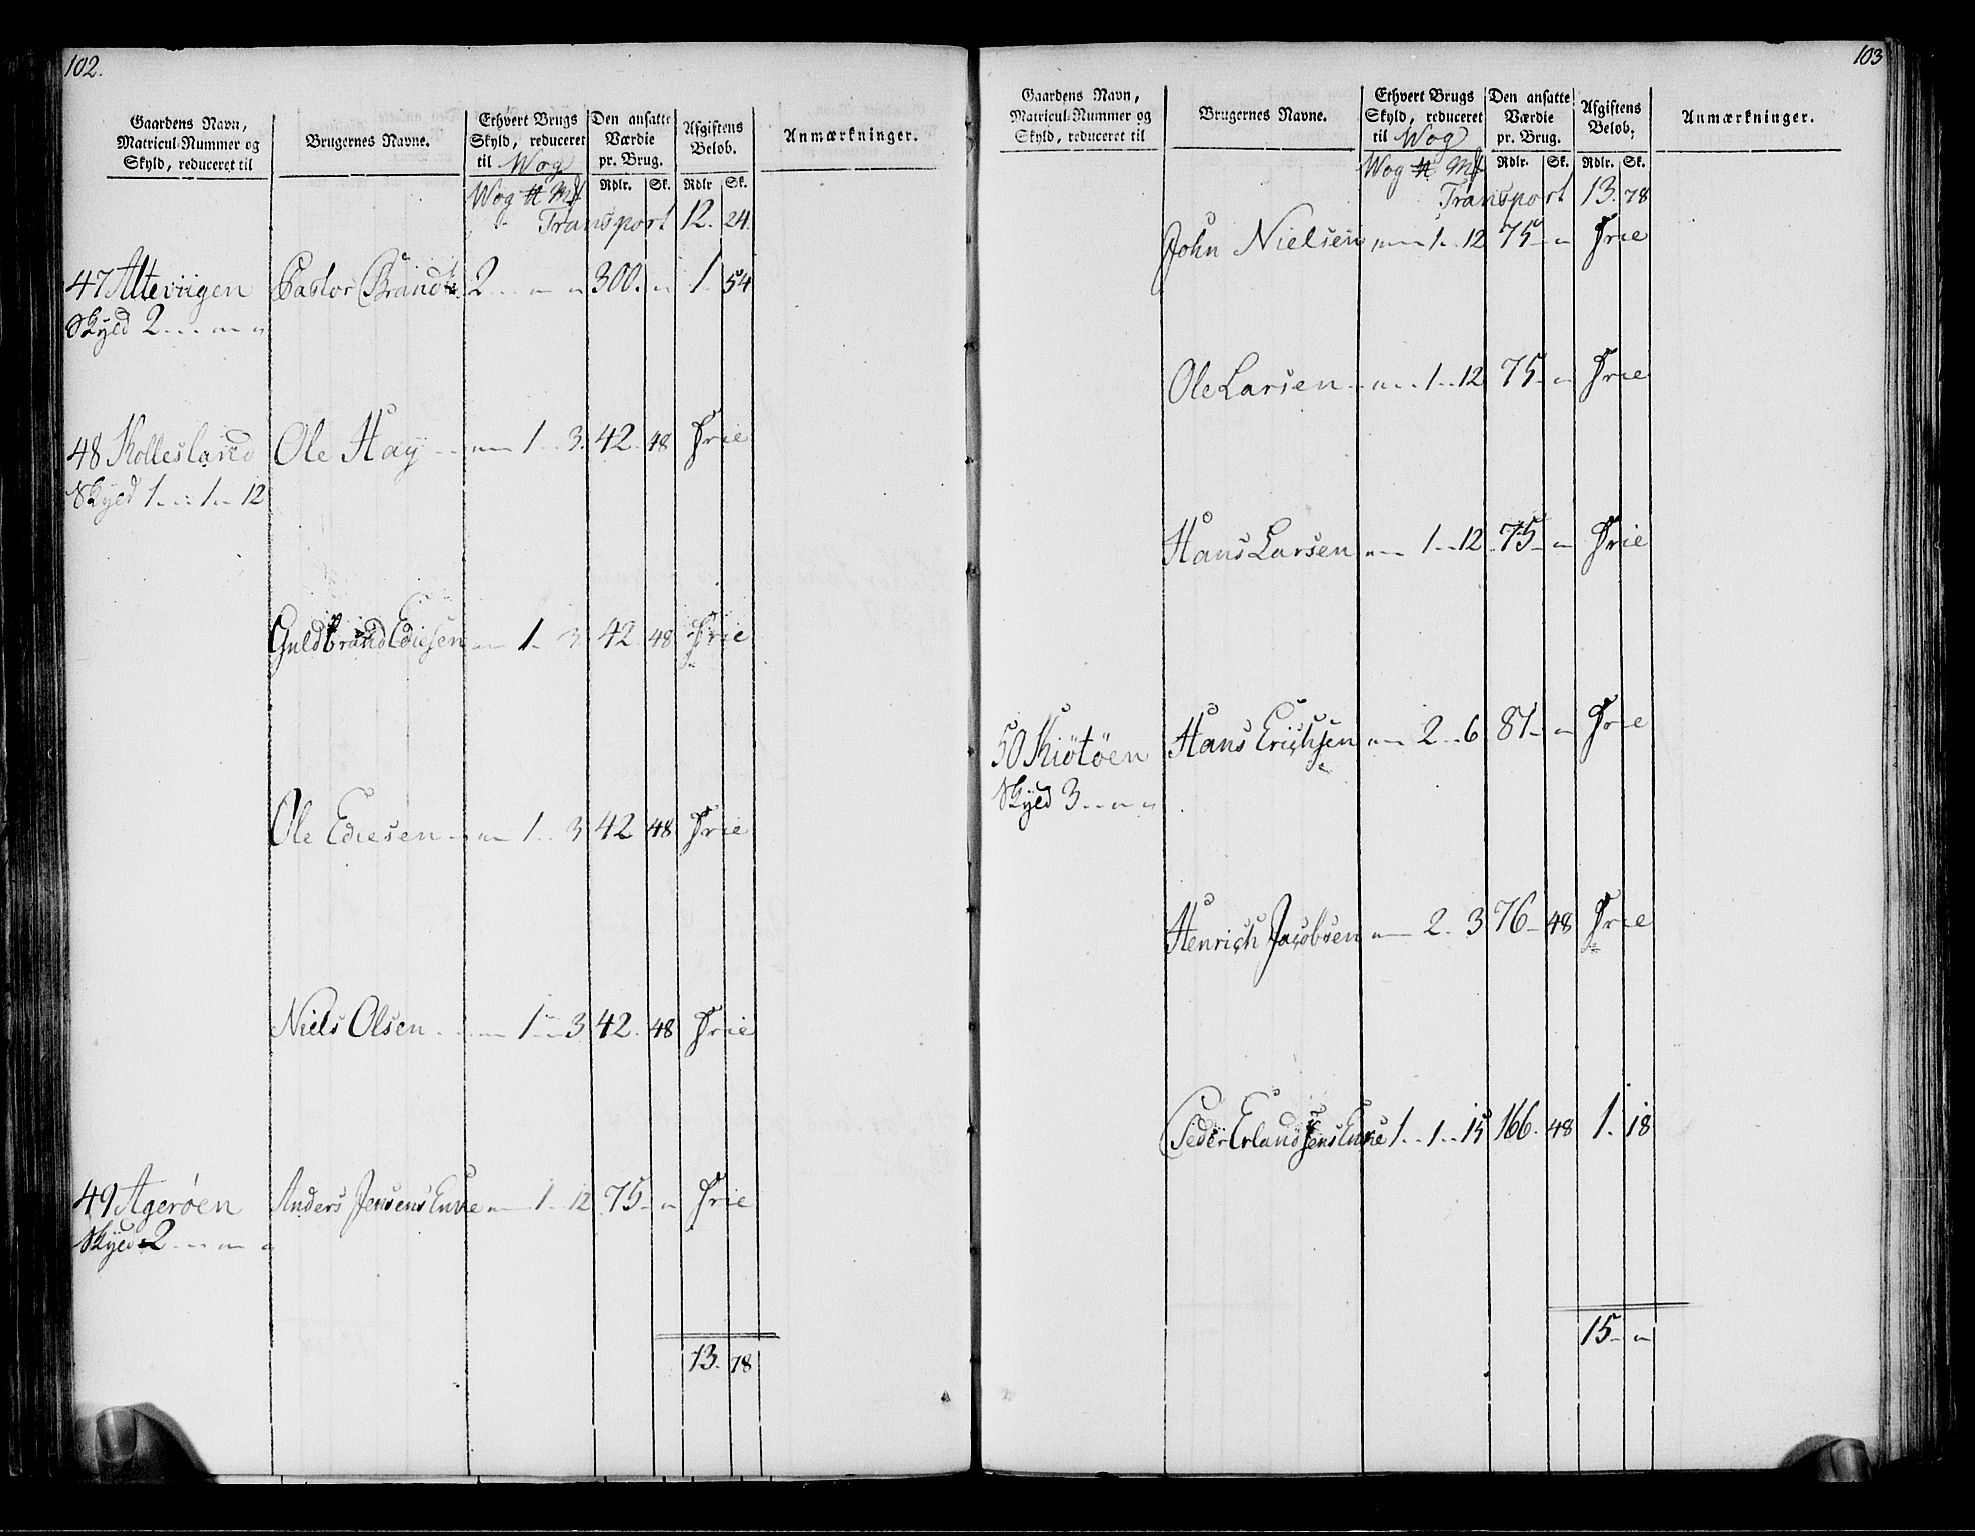 102.
Gaardens Navn, Matricul-Nummer og Skyld, reduceret til
Brugernes Navne.
Ethvert Brugs Skyld, reduceret til Wog
Den ansatte Værdie pr. Brug.
Afgiftens Beløb.
Anmærkninger.
Wog ℔ Mf Rdlr. Sk. Rdlr Sk.
Transport 12. 24
47 Alteviigen Pastor Brandt 2 .. „ „ 300. „ 1. 54
Skyld 2 ... „ „
48 Kollesland Ole Hay „ 1 .. 3. 42. 48 Frie
Skyld 1 .. 1 .. 12
Guldbrand Ediesen „ 1. 3 42. 48 Frie
Ole Ediesen „ 1 .. 3 42 48 Frie
Niels Olsen „ 1 .. 3 42. 48 Frie
49 Agerøen Anders Jensens Enke „ 1 .. 12 75 „ Frie
Skyld 2 ... „ „
13. 78
103
Gaardens Navn, Matricul-Nummer og Skyld, reduceret til
Brugernes Navne.
Ethvert Brugs Skyld, reduceret til Wog
Den ansatte Værdie pr. Brug.
Afgiftens Beløb.
Anmærkninger.
Wog ℔ Mf Rdlr. Sk. Rdlr. Sk.
Transport 13. 78
John Nielsen „ 1 .. 12 75 „ Frie
Ole Larsen „ 1 .. 12 75 „ Frie
Hans Larsen „ 1 .. 12 75 „ Frie
50 Kiötöen Hans Erichsen „ 2 .. 6 81 „ Frie
Skyld 3 .. „ „
Henrich Jacobsen „ 2. 3 76 48 Frie
Peder Erlandsens Enke 1 .. 1 .. 15 166. 48 1. 18
15 „